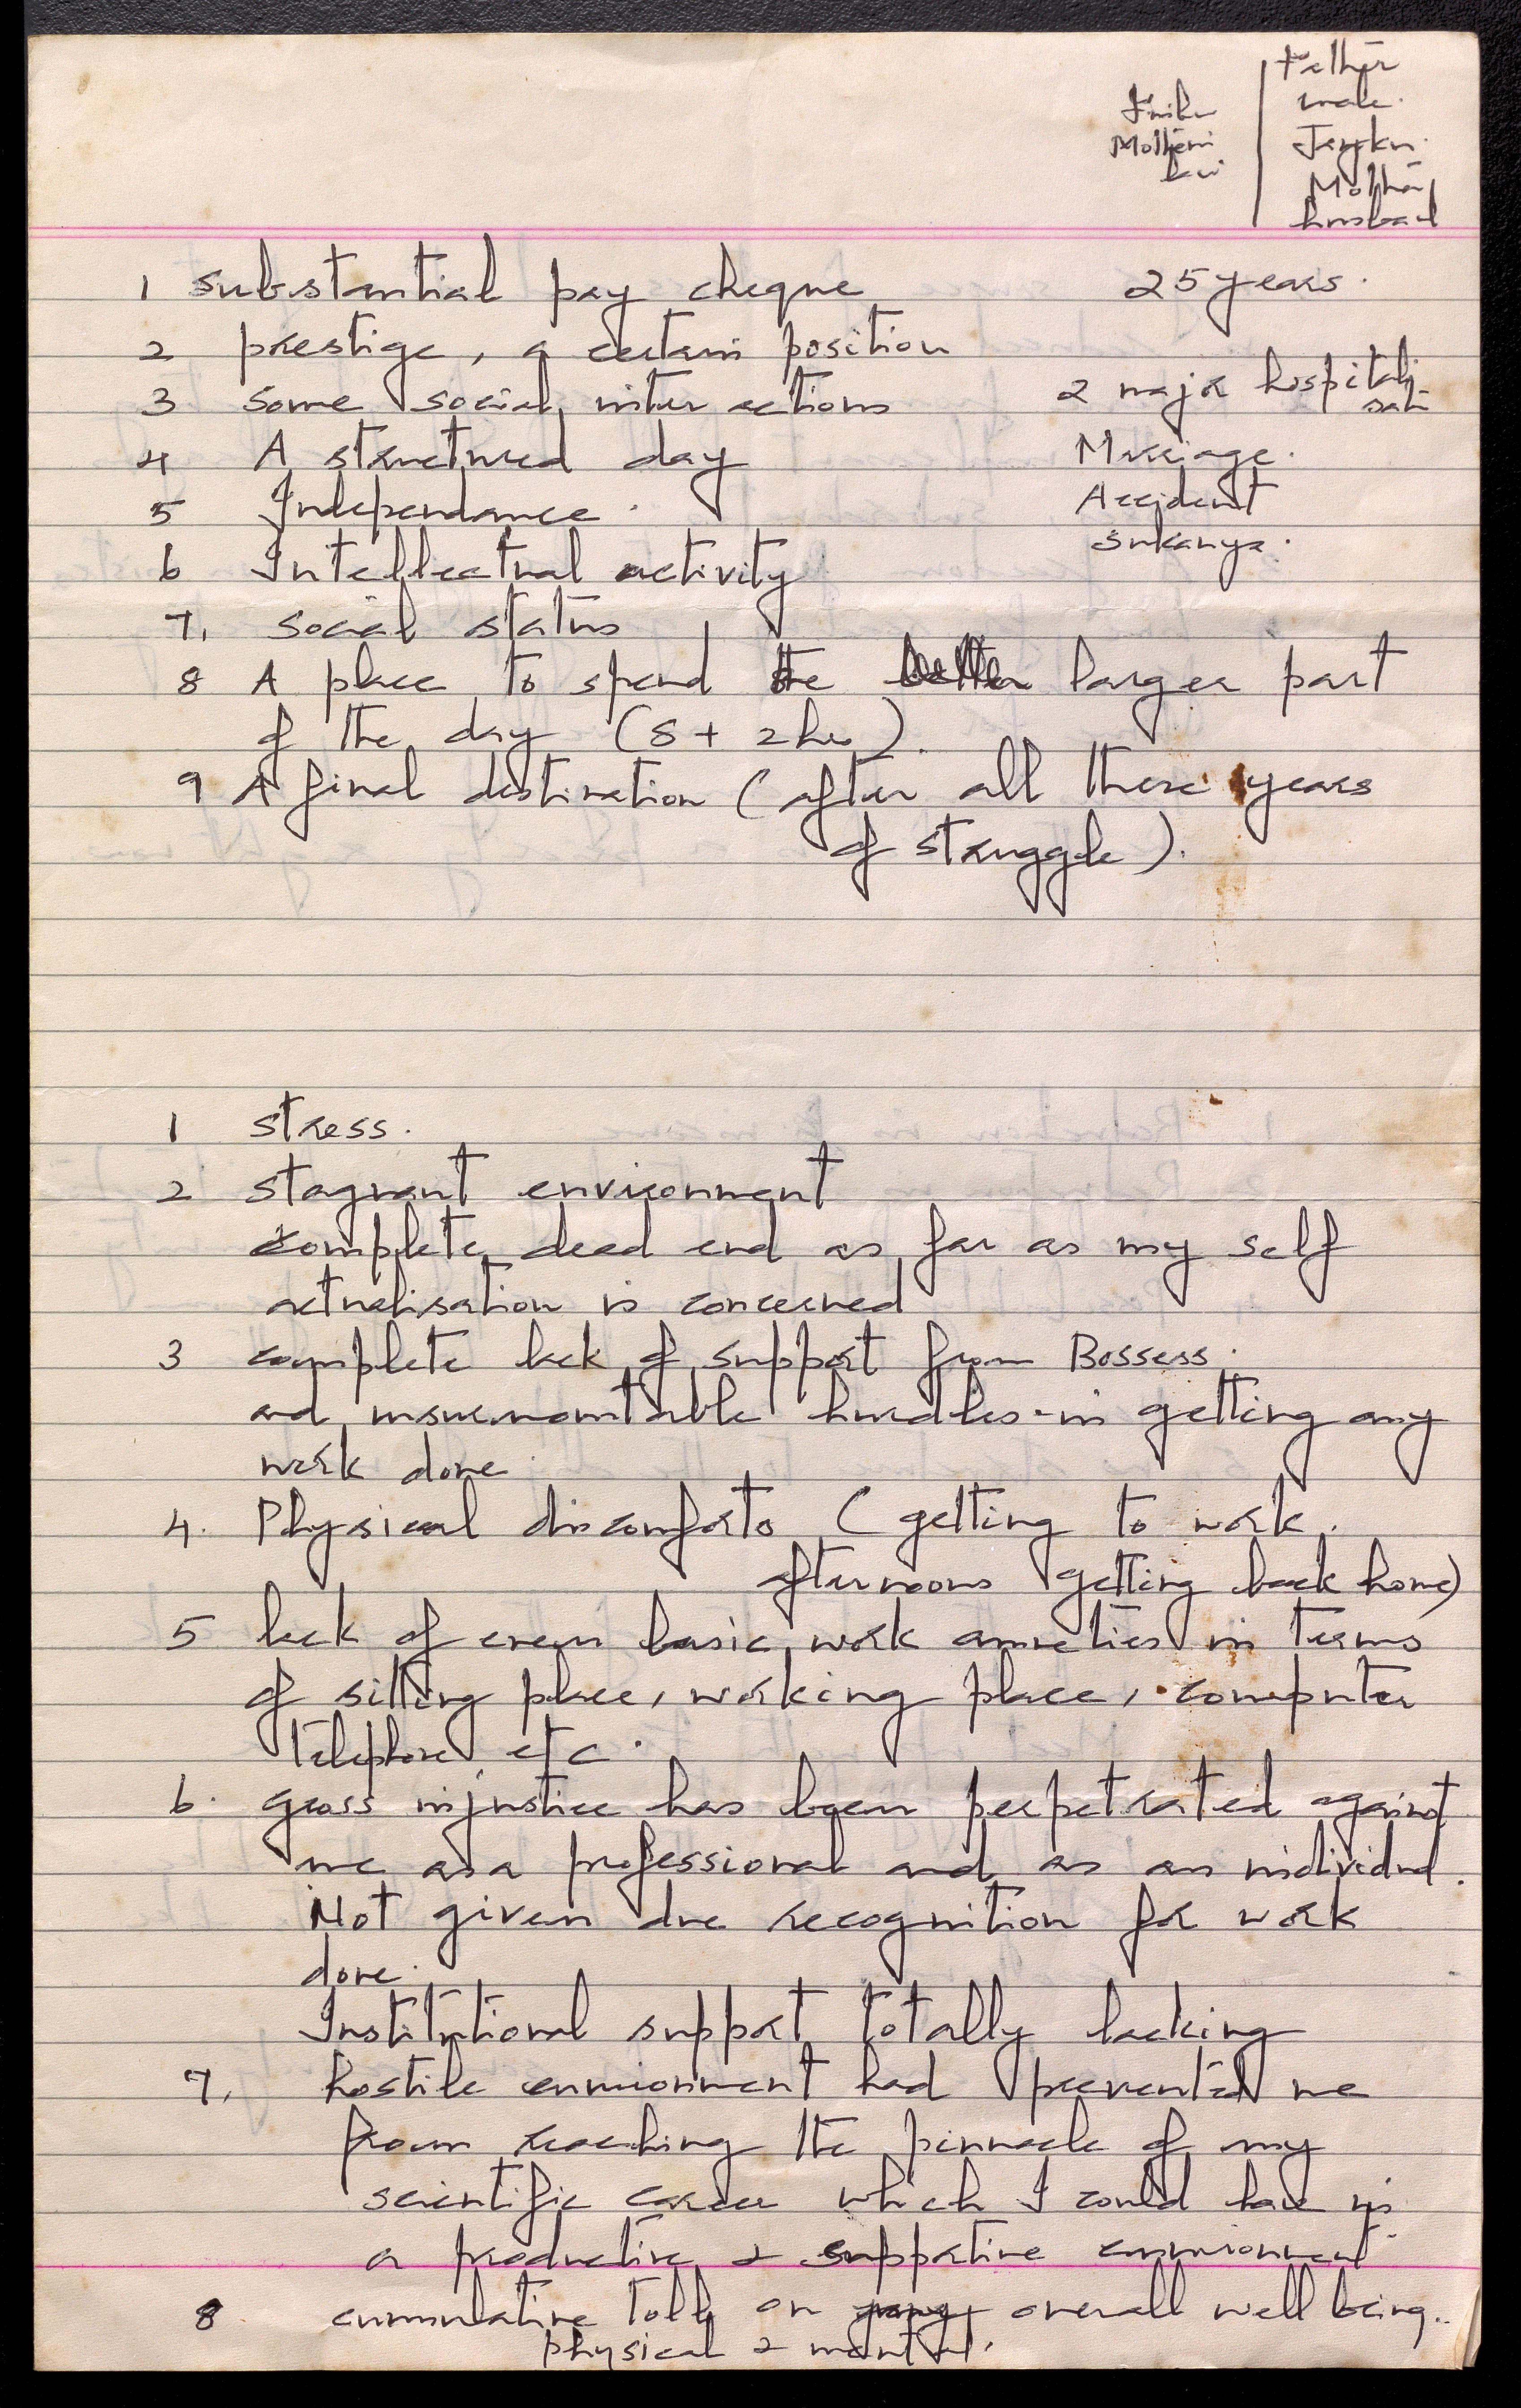 Father
male.
Mother
Mother
law
husband
1 substantial pay cheque 25 years.
2 prestige, a certain position
3 some social inter actions 2 major hospitali
sati
4 A structured day Marriage.
5 Independance. Accident
Sukanya.
6 Intellectual activity
7. social status
8 A place to spend the larger part
of the day (8 + 2 hrs).
9 A final destination (after all these years
of struggle).
1 stress.
2 stagnant environment
complete dead end as far as my self
actualisation is concerned
3 complete lack of support from Bossess.
and insurmountable hurdles in getting any
work done.
4. Physical discomforts (getting to work.
afternoons getting back home)
5 lack of even basic work ameneties in terms
of sitting place, working place, computer
telephone etc.
6. gross injustice has been perpetrated against
me as a professional and as an individual.
Not given due recognition for work
done.
Institutional support totally lacking
7. hostile environment had prevented me
from reaching the pinnacle of my
scientific career which I could have in
a productive & supportive environment
8 cumulative toll on overall well being..
physical & mental.